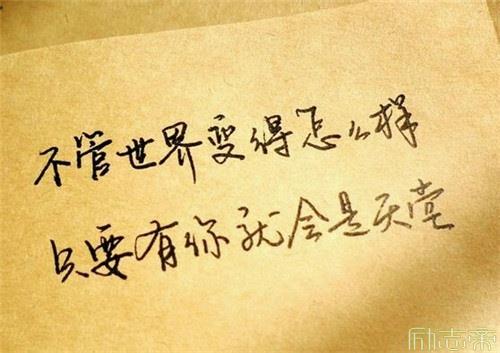 不管世界变得怎么样
只要有你就会是天堂
励志帝